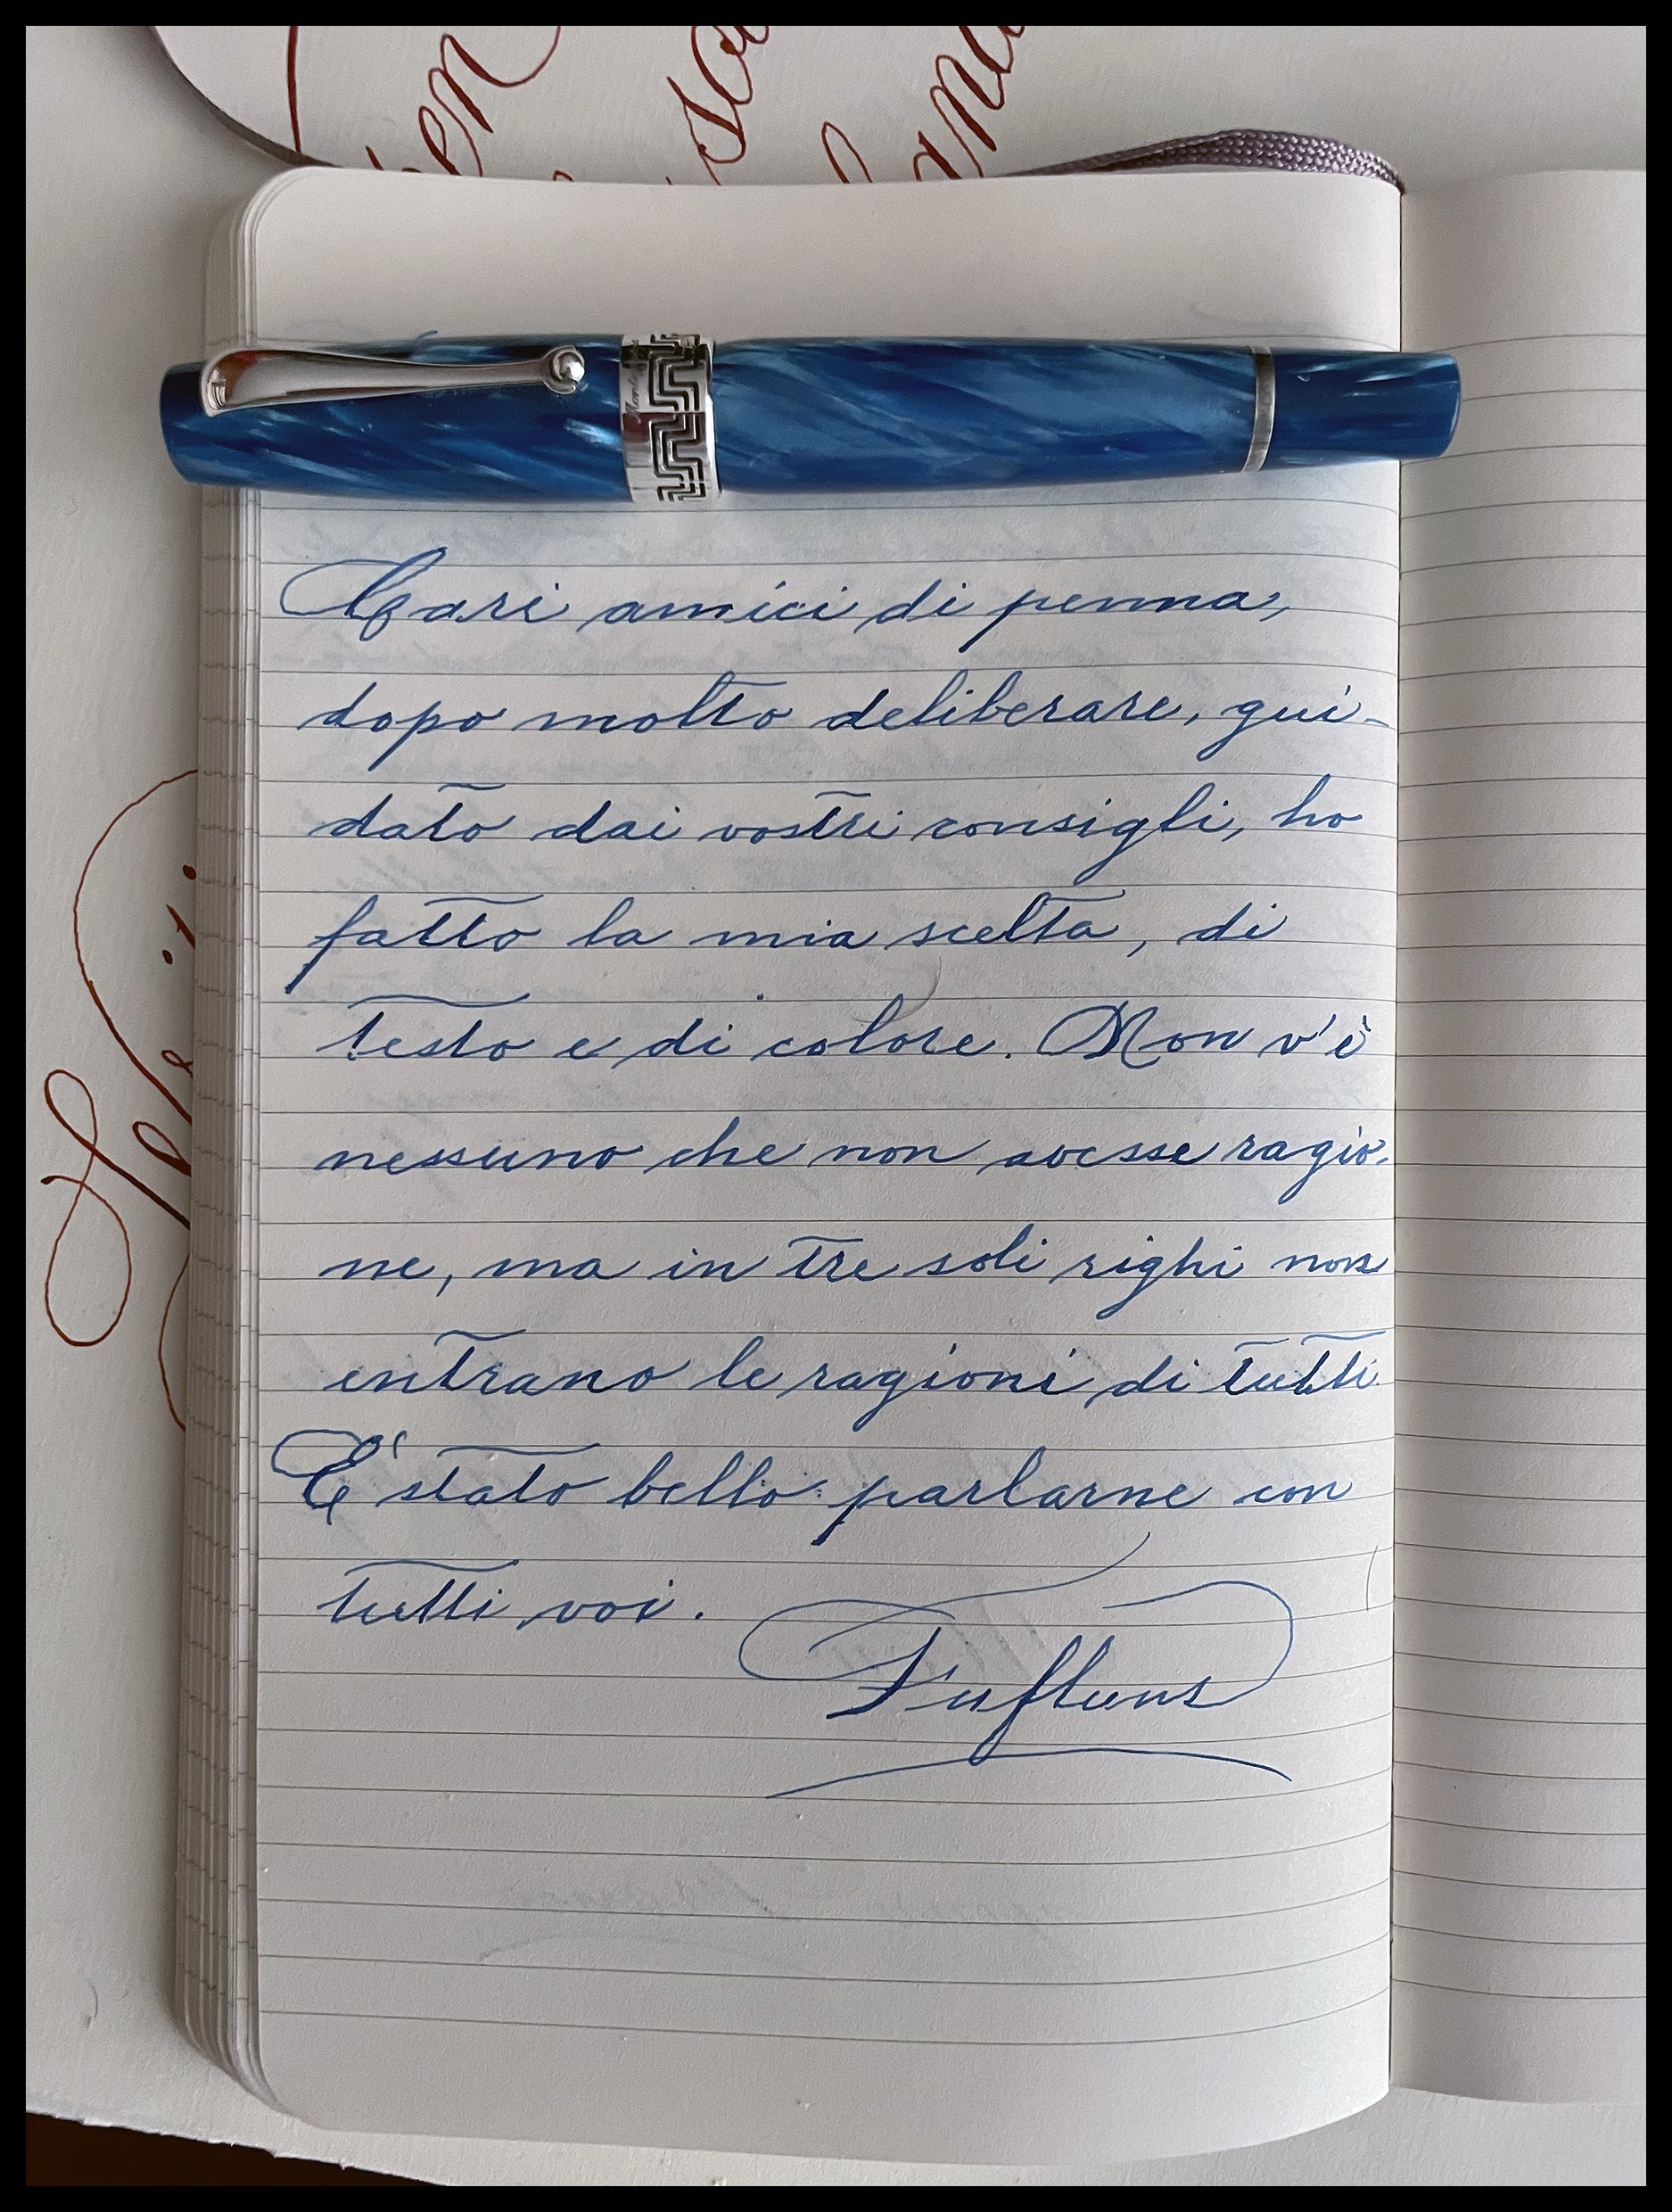 en
Cari amici di penna,
dopo molto deliberare, gui-
dato dai vostri consigli, ho
fatto la mia scelta, di
testo e di colore. Non v'è
nessuno che non avesse ragio-
ne, ma in tre soli righi non
entrano le ragioni di tutti.
E' stato bello parlarne con
tutti voi.
Fufluns